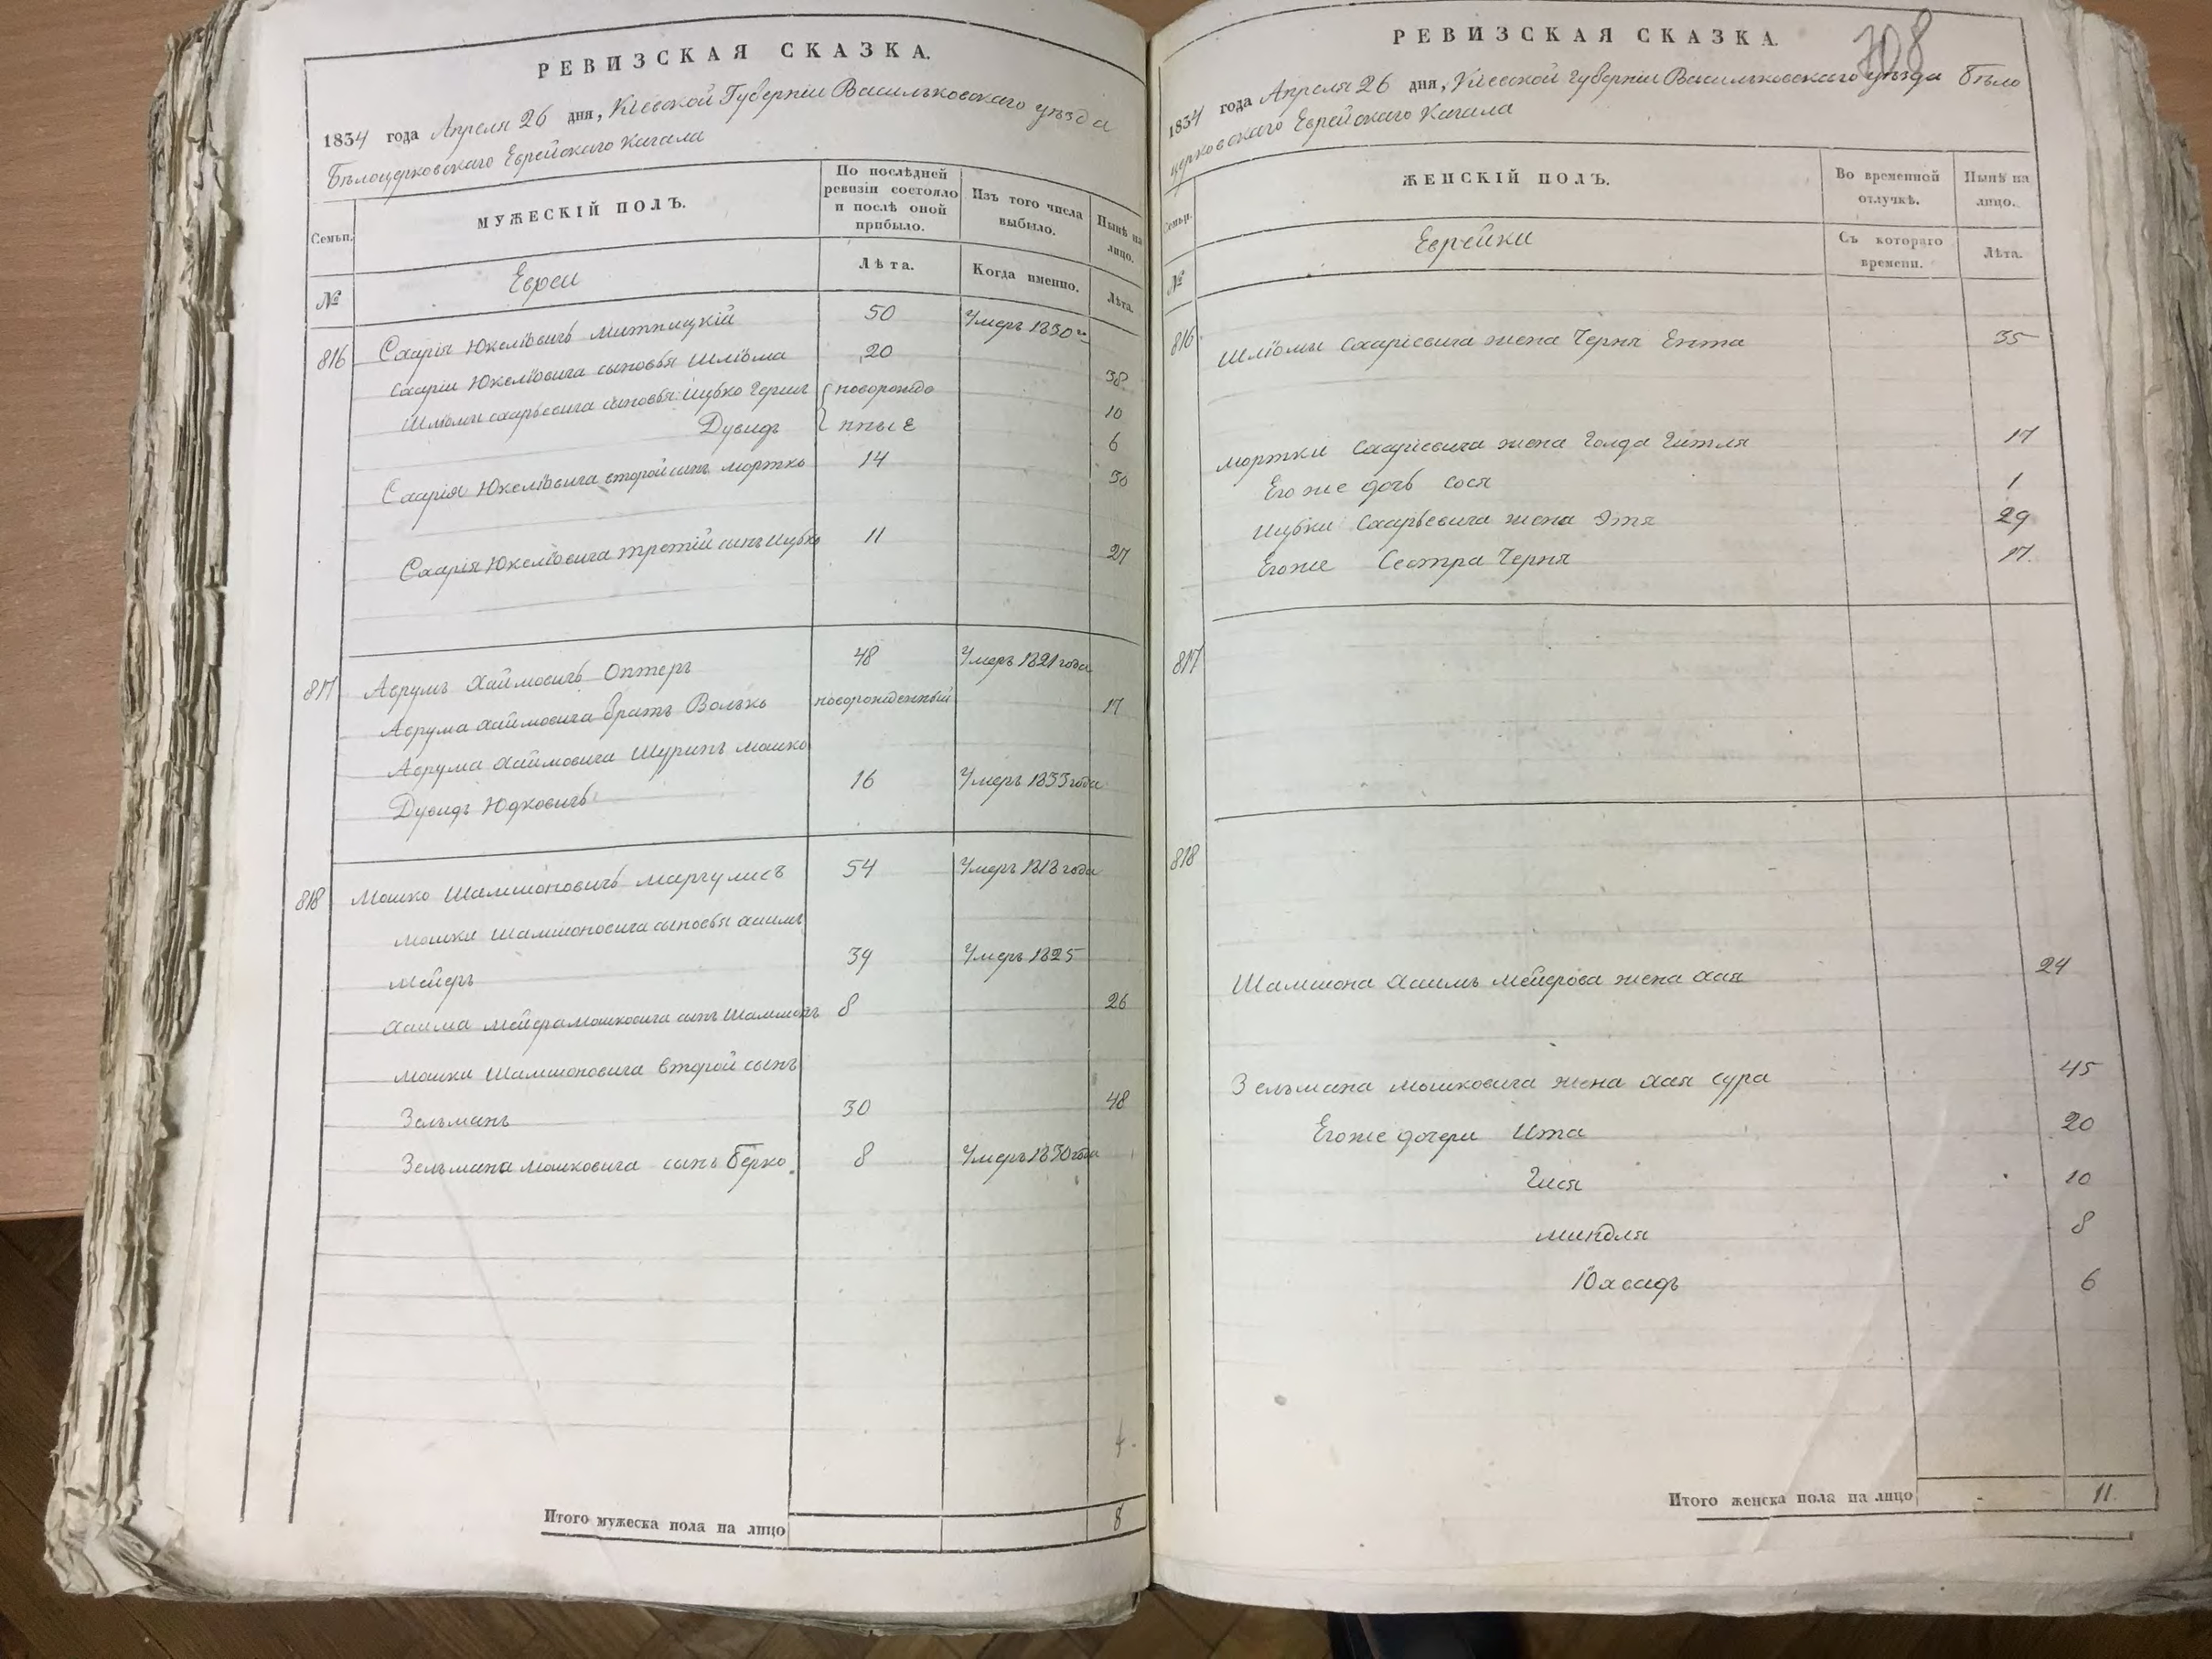 РЕВИЗСКАЯ СКАЗКА.
1834 года Апреля 26 дня, Кіевской Губерніи Васильковскаго уѣзда
Бѣлоцерковскаго Еврейскаго Кагала
Семьи.
МУЖЕСКІЙ ПОЛЪ.
По послѣдней ревизіи состояло и послѣ оной прибыло.
Изъ того числа выбыло.
Нынѣ на лицо.
№
Евреи
Лѣта.
Когда именно.
Лѣта.
816 Сахарія Юкелїовичъ Митницкій 50 Умеръ 1830 го
Сахаріи Юкелїовича сыновья Шлїома 20 38
Шлїомы Сахарьевича сыновья: Ицько Гершъ новорожде 10
Дувидъ нные 6
Сахарія Юкелїовича второй сынъ Мортко 14 30
Сахарія Юкелїовича третїй сынъ Ицько 11 27
817 Аврумъ Хаймовичъ Оптеръ 48 Умеръ 1821 года
Аврума Хаймовича братъ Волько новорожденный 17
Аврума Хаймовича Шуринъ Мошко
Дувидъ Юдковичъ 16 Умеръ 1833 года
818 Мошко Шамшоновичъ Маргулисъ 54 Умеръ 1818 года
Мошки Шамшоновича сыновья Хаимъ
Мейеръ 39 Умеръ 1825
Хаима Мейера Мошковича сынъ Шамшонъ 8 26
Мошки Шамшоновича второй сынъ
Зельманъ 30 48
Зельмана Мошковича сынъ Берко. 8 Умеръ 1830 года
4.
Итого мужеска пола на лицо 8
708
РЕВИЗСКАЯ СКАЗКА.
1834 года Апреля 26 дня, Кіевской Губерніи Васильковскаго уѣзда Бѣло
церковскаго Еврейскаго Кагала
Семьи.
ЖЕНСКІЙ ПОЛЪ.
Во временной отлучкѣ.
Нынѣ на лицо.
№
Еврейки
Съ котораго времени.
Лѣта.
816 Шлїомы Сахарїевича жена Черня Ента 35
Мортки Сахарїевича жена Голда Гитля 17
Его же дочь Сося 1
Ицьки Сахарьевича жена Этя 29
Его же Сестра Черня 17.
817
818
Шамшона Хаимъ Мейерова жена Хая 24
Зельмана Мошковича жена Хая Сура 45
Его же дочери Ита 20
Гися 10
Миндля 8
Юхвидъ 6
Итого женска пола на лицо - 11.